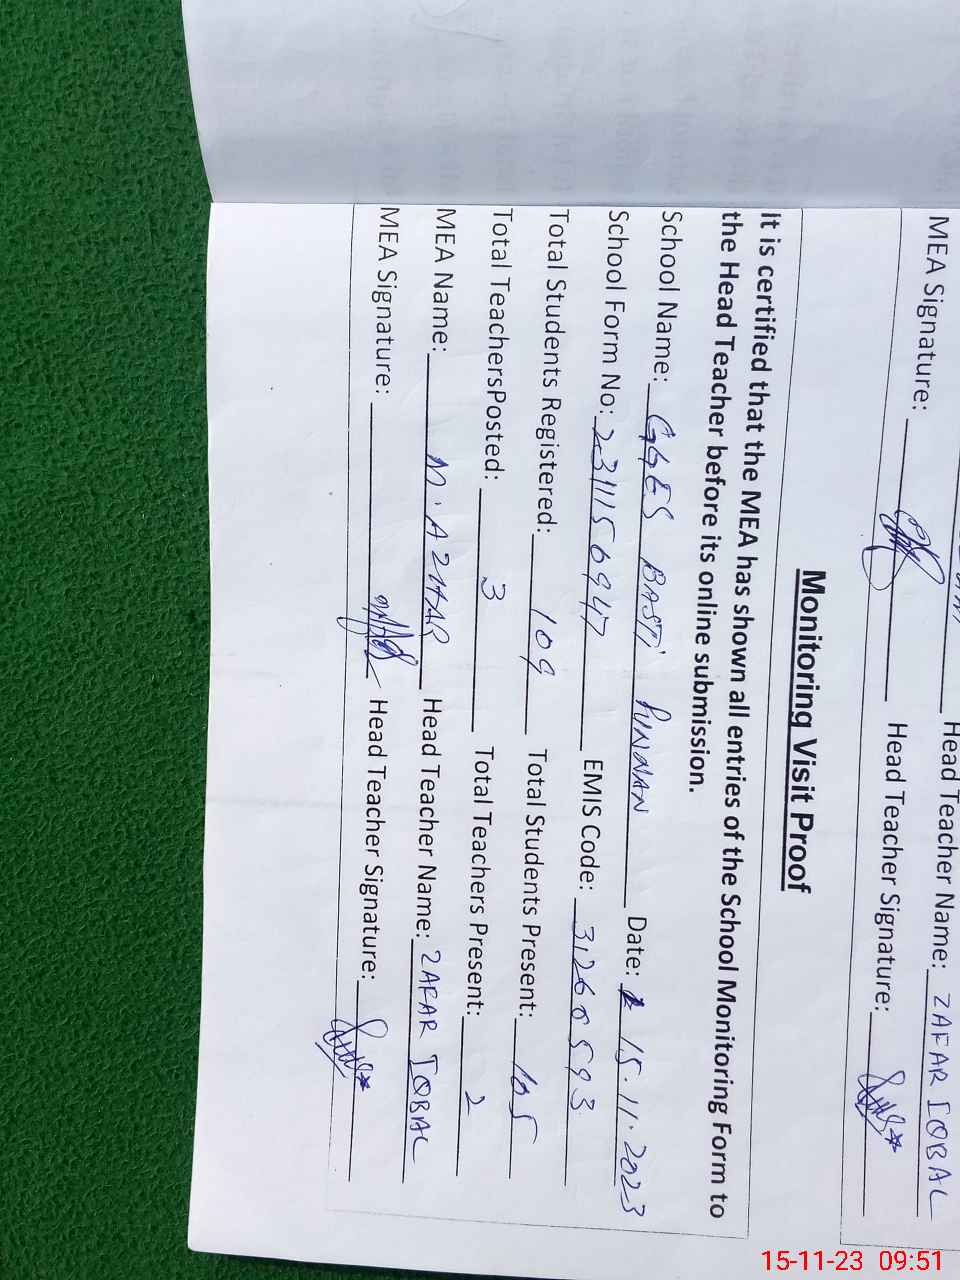 Head Teacher Name: ZAFAR IQBAL
MEA Signature: Head Teacher Signature:
Monitoring Visit Proof
It is certified that the MEA has shown all entries of the School Monitoring Form to
the Head Teacher before its online submission.
School Name: GGES BASTI PUNNAN Date: 15.11.2023
School Form No: 2311156947 EMIS Code: 31260593
Total Students Registered: 109 Total Students Present: 105
Total TeachersPosted: 3 Total Teachers Present: 2
MEA Name: M. AZHAR Head Teacher Name: ZAFAR IQBAL
MEA Signature: Head Teacher Signature:
15-11-23 09:51